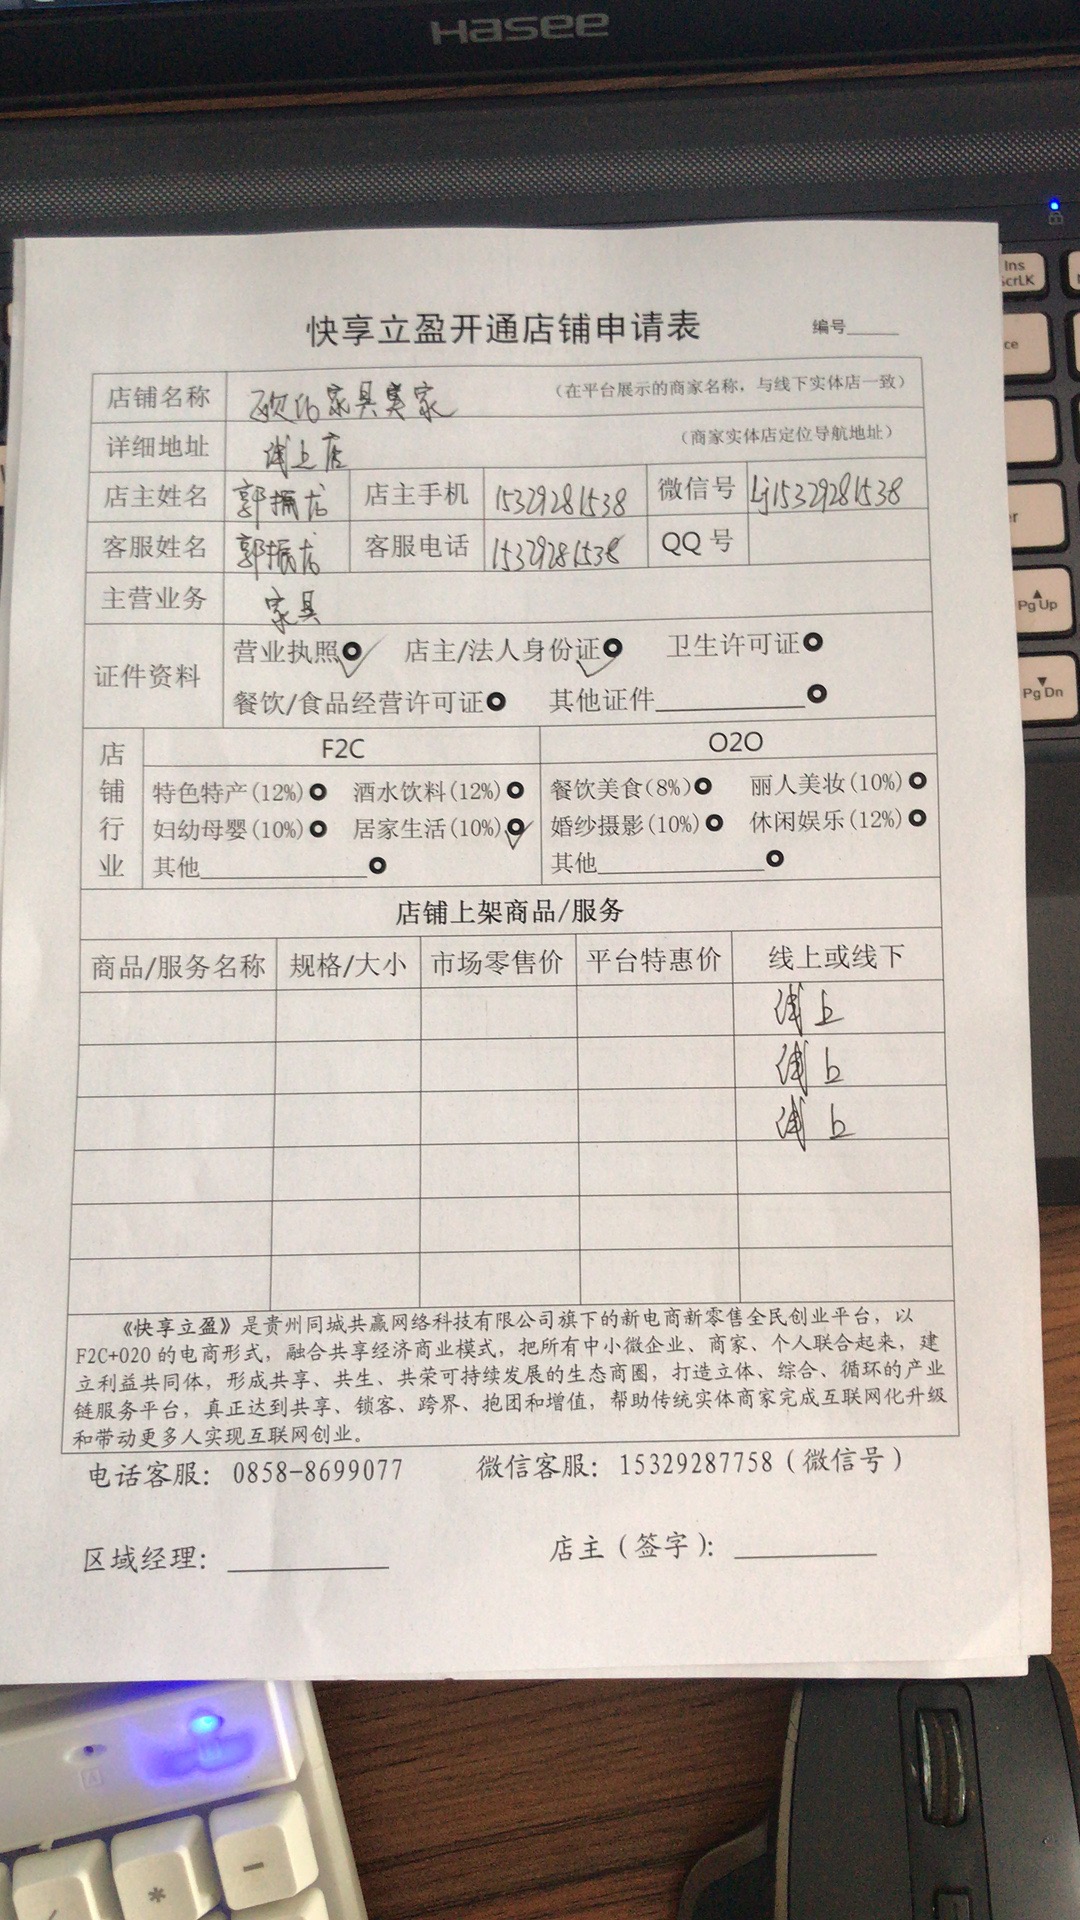 Hasee
Ins
ScrLK
Pg Up
Pg Dn
快享立盈开通店铺申请表 编号
店铺名称 家具 家 (在平台展示的商家名称，与线下实体店一致)
详细地址 上店 (商家实体店定位导航地址)
店主姓名 郭振龙 店主手机 15329281538 微信号 Lj15329281538
客服姓名 郭振龙 客服电话 15329281538 QQ 号
主营业务 家具
证件资料 营业执照 店主/法人身份证 卫生许可证
餐饮/食品经营许可证 其他证件
店铺行业 F2C O2O
特色特产(12%) 酒水饮料(12%) 餐饮美食(8%) 丽人美妆(10%)
妇幼母婴(10%) 居家生活(10%) 婚纱摄影(10%) 休闲娱乐(12%)
其他 其他
店铺上架商品/服务
商品/服务名称 规格/大小 市场零售价 平台特惠价 线上或线下
上
上
上
《快享立盈》是贵州同城共赢网络科技有限公司旗下的新电商新零售全民创业平台，以
F2C+O2O 的电商形式，融合共享经济商业模式，把所有中小微企业、商家、个人联合起来，建
立利益共同体，形成共享、共生、共荣可持续发展的生态商圈，打造立体、综合、循环的产业
链服务平台，真正达到共享、锁客、跨界、抱团和增值，帮助传统实体商家完成互联网化升级
和带动更多人实现互联网创业。
电话客服：0858-8699077 微信客服：15329287758（微信号）
区域经理： 店主（签字）：